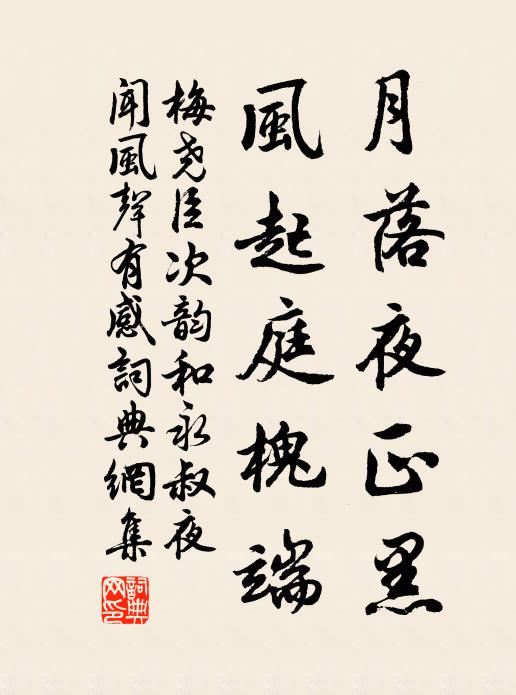 月落夜正黑
風起庭槐端
梅尧臣次韵和永叔夜
闻風聲有感詞典網集
詞典網印